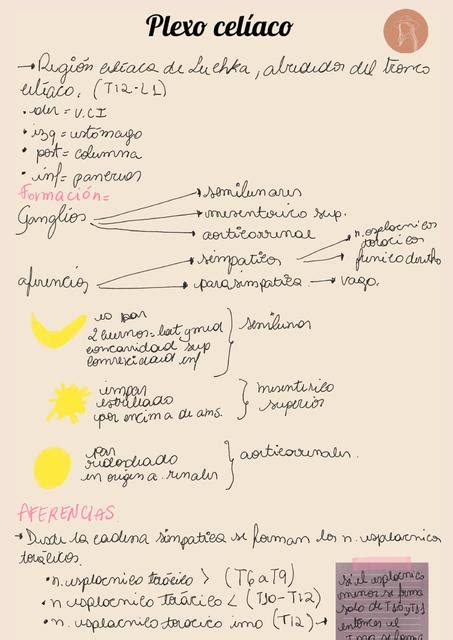 Plexo celíaco
→ Región celíaca de Luchka, alrededor del tronco
celíaco. (T12-L1)
• der = V.C.I
• izq = estómago
• post = columna
• inf = pancreas
Formación =
Ganglios
semilunares
mesenterico sup.
aorticorrenal
aferencias
simpaticos
n. esplacnicos
toracicos
frenico derecho
parasimpatica → vago.
es par
2 cuernos = lat y med
concavidad sup
convexidad inf
semilunar
impar
estrellado
por encima de ams.
mesenterico
superior
par
redondeado
en origen a. renales
aorticorrenales.
AFERENCIAS
→ Desde la cadena simpatica se forman los n. esplacnicos
torácicos.
• n. esplacnico torácico > (T6 a T9)
• n esplacnico torácico < (T10-T12)
• n. esplacnico toracico imo (T12) →
si el esplacnico
menor se forma
solo de T10 y T11
entonces el